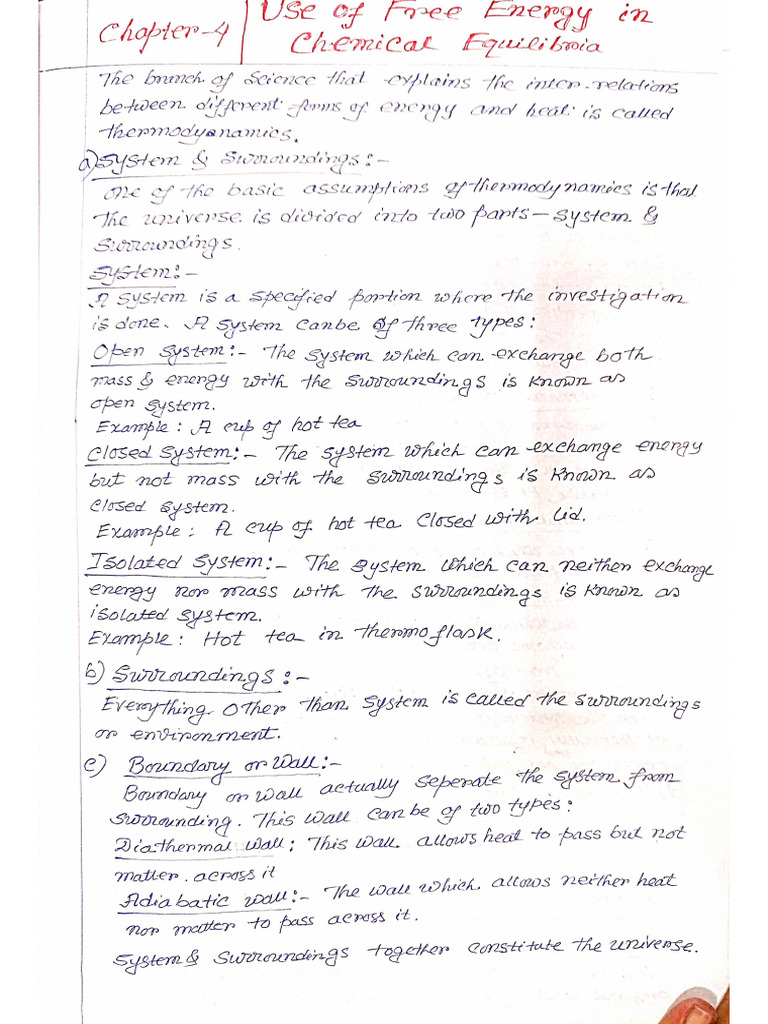 Chapter-4
Use of Free Energy in
Chemical Equilibria
The branch of science that explains the inter-relations
between different forms of energy and heat is called
thermodynamics.
a) System & Surroundings:-
One of the basic assumptions of thermodynamics is that
the universe is divided into two parts - System &
Surroundings.
System:-
A system is a specified portion where the investigation
is done. A system can be of three types:
Open System:- The system which can exchange both
mass & energy with the surroundings is known as
open system.
Example: A cup of hot tea
Closed System:- The system which can exchange energy
but not mass with the surroundings is known as
closed system.
Example: A cup of hot tea closed with lid.
Isolated System:- The system which can neither exchange
energy nor mass with the surroundings is known as
isolated system.
Example: Hot tea in thermoflask.
b) Surroundings:-
Everything other than system is called the surroundings
or environment.
c) Boundary or Wall:-
Boundary or wall actually seperate the system from
surrounding. This wall can be of two types:
Diathermal wall: This wall allows heat to pass but not
matter across it
Adiabatic wall:- The wall which allows neither heat
nor matter to pass across it.
System & surroundings together constitute the universe.